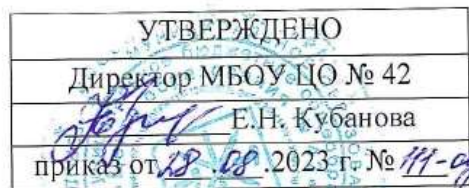 УТВЕРЖДЕНО
Директор МБОУ ЦО № 42
Е.Н. Кубанова
приказ от 28.08.2023 г. № 111-